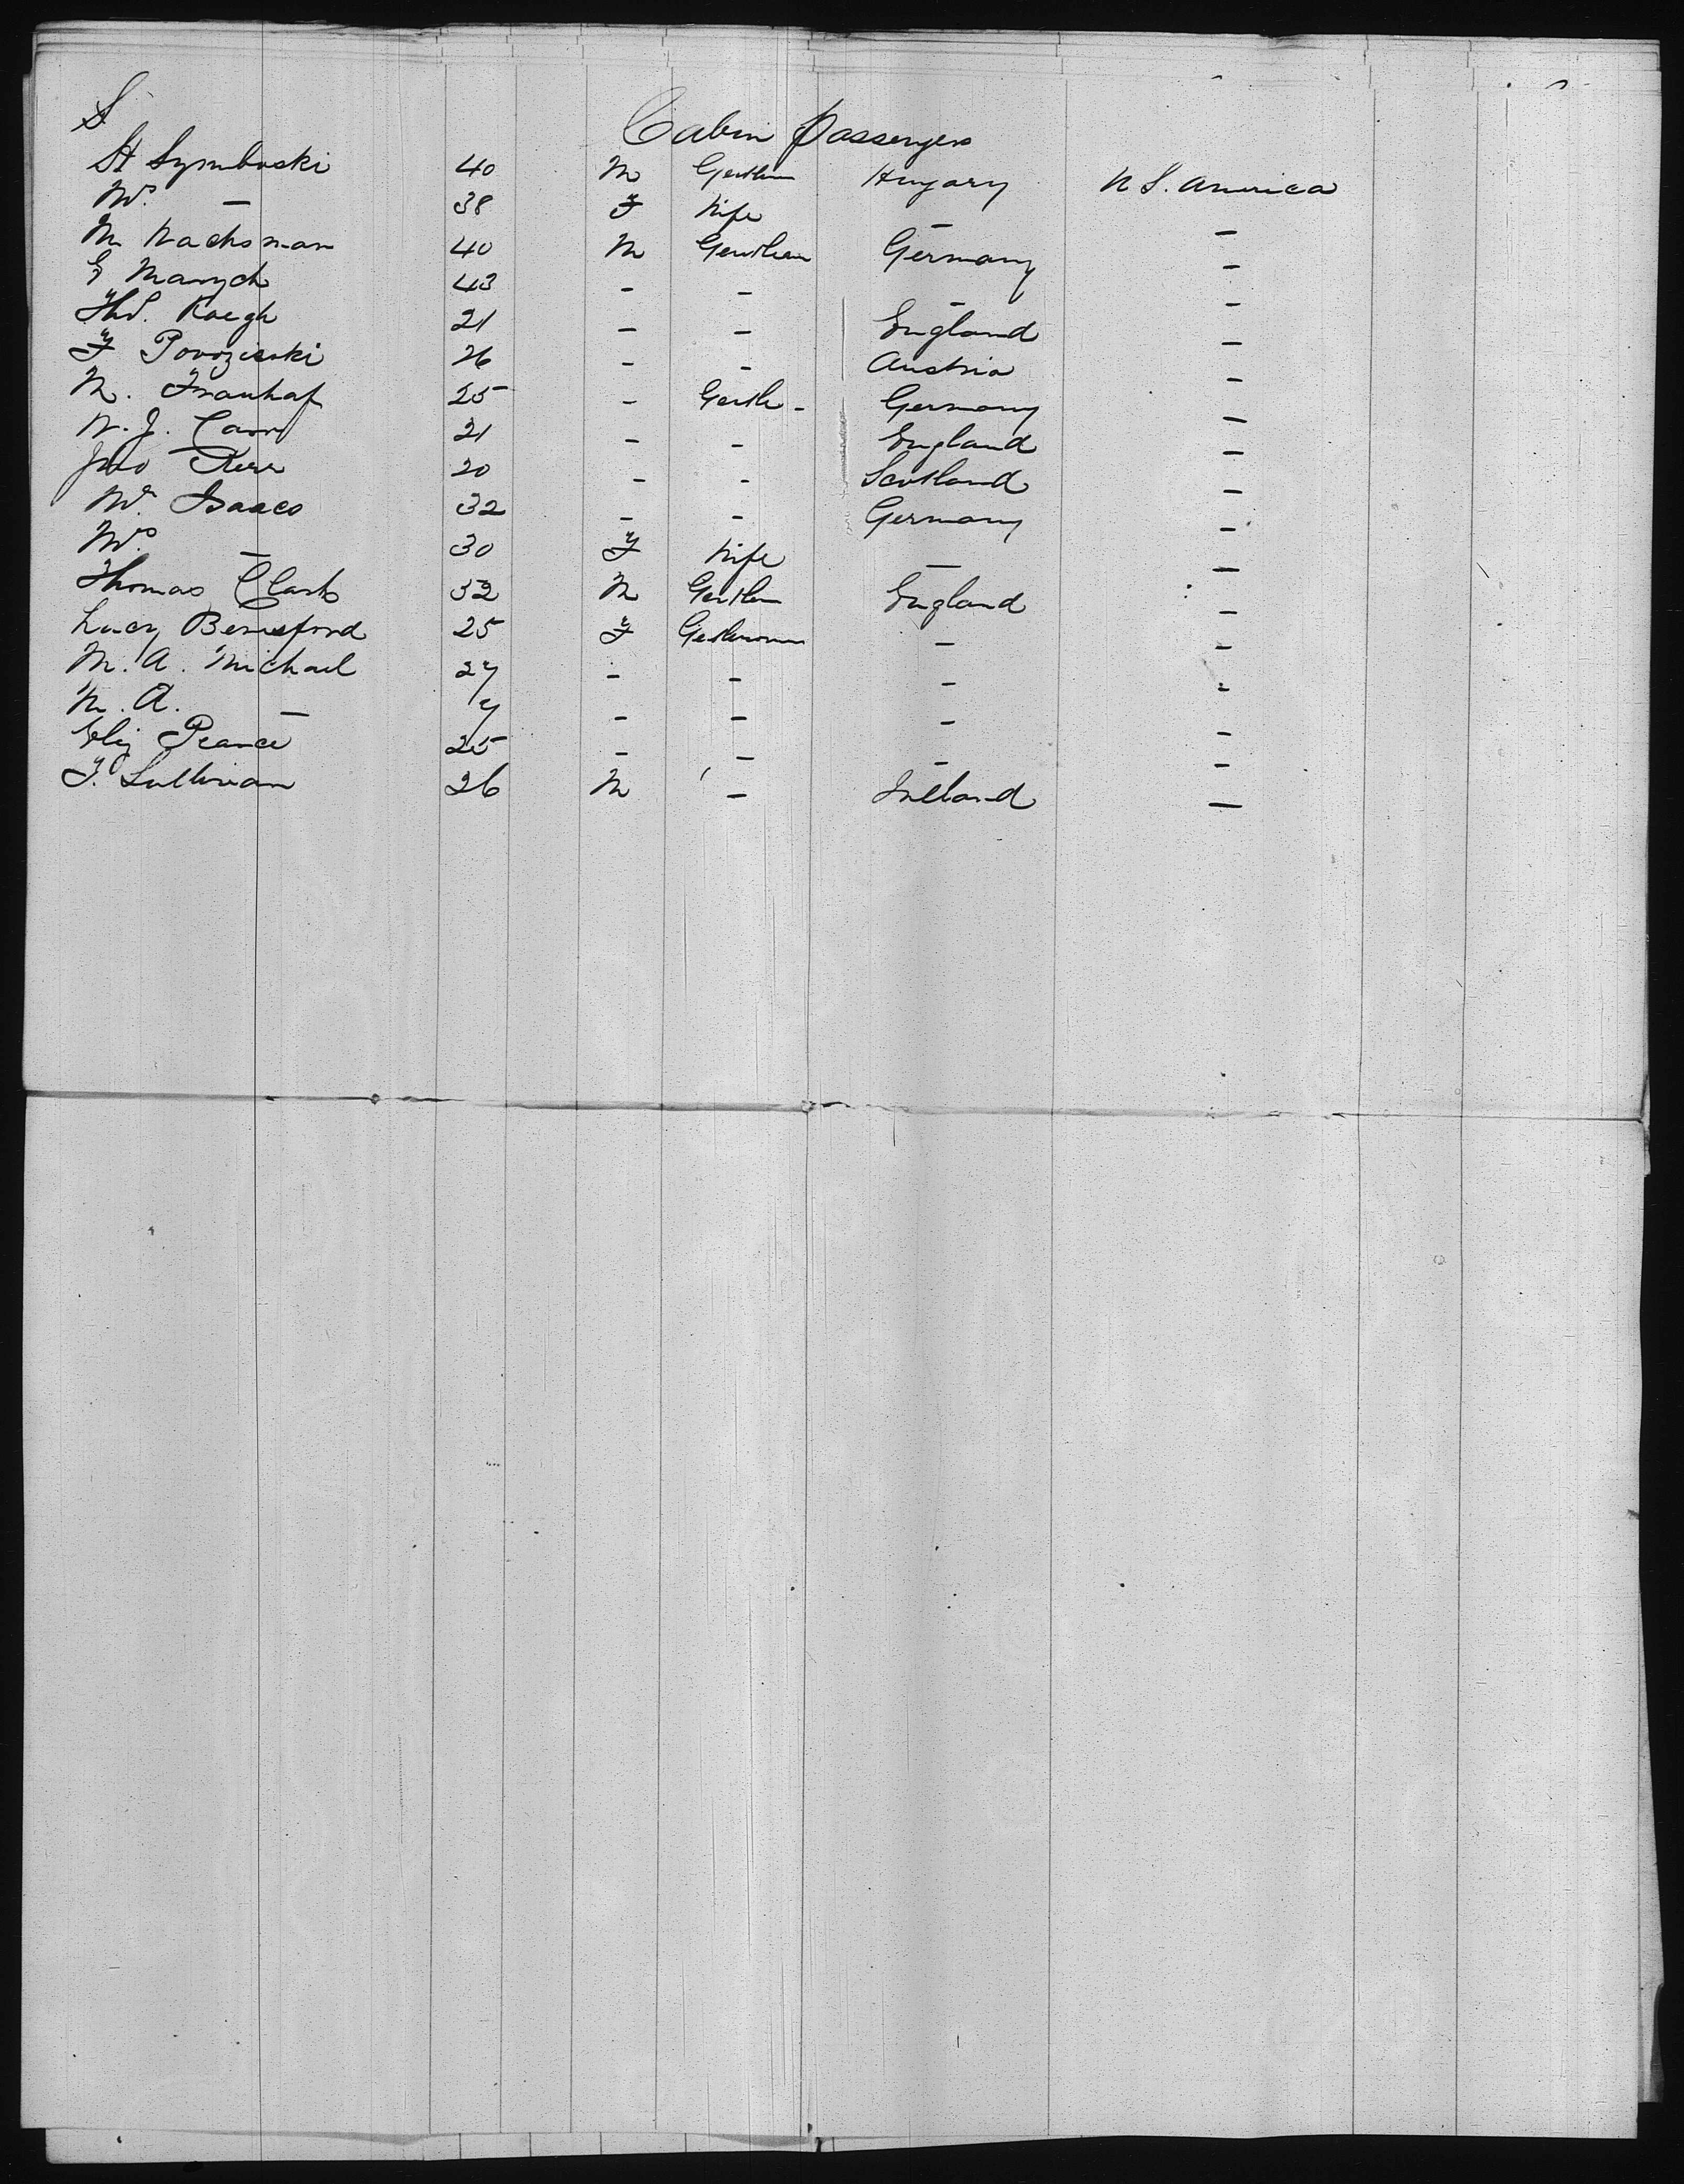 S
Cabin Passengers
St Symboski 40 M Gentlem Hungary U S. America
Mrs. — 38 F Wife — —
M Wachsman 40 M Gentlem Germany —
G Marych 43 - - - —
Thos. Keogh 21 - - England —
F 26 - - Austria —
M. 25 - Gentle- Germany —
W. J. Carr 21 - - England —
Jno Kerr 20 - - Scotland —
Mr. Isaacs 32 - - Germany —
Mrs. — 30 F Wife — —
Thomas Clark 32 M Gentlem England —
Lucy Beresford 25 F Gentlewoman — —
M. A. Michael 27 - - - -
M. A. — 7 - - - -
Eliz Pearce 25 - - - -
J. Sullivan 26 M - Ireland —